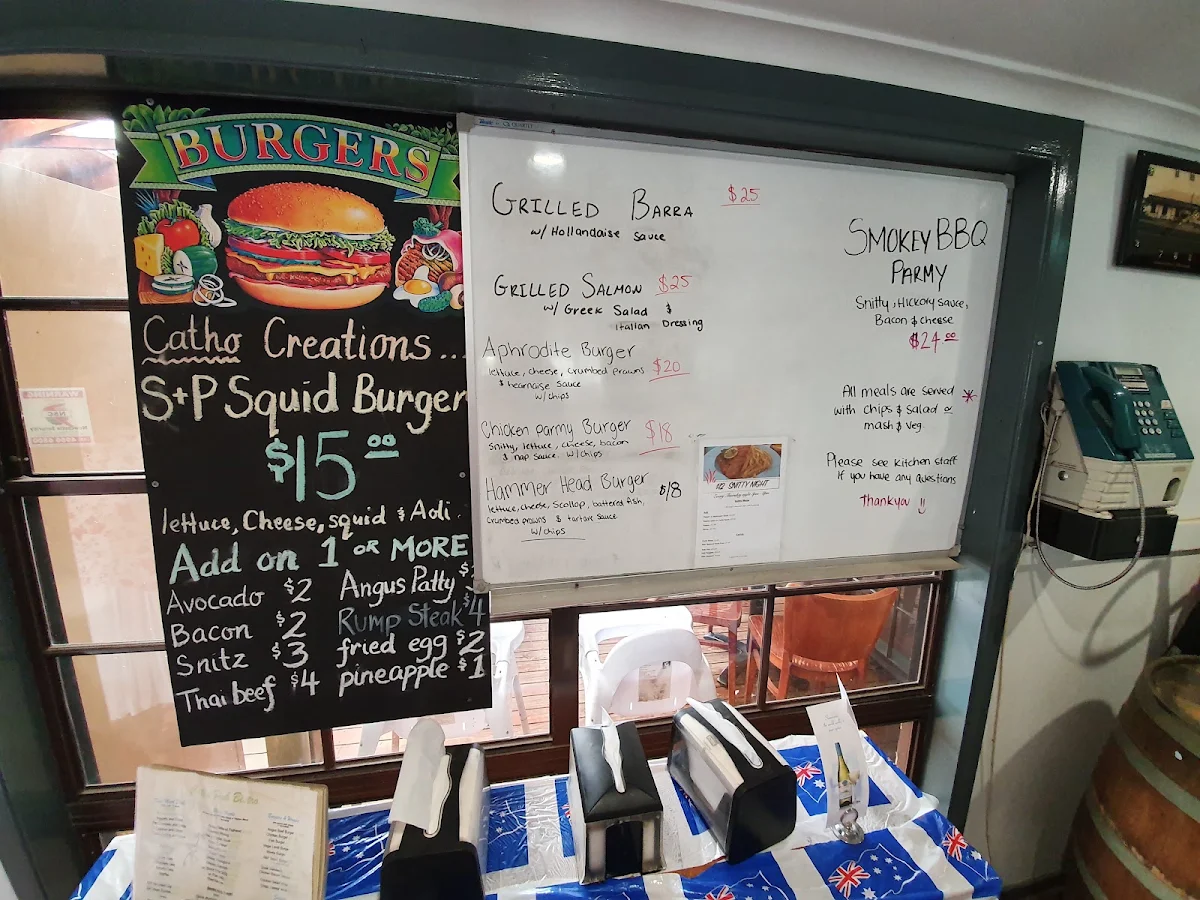 BURGERS
Catho Creations...
S+P Squid Burger
$15.00
lettuce, Cheese, squid & Aoli.
Add on 1 OR MORE
Avocado $2
Bacon $2
Snitz $3
Thai beef $4
Angus Patty $
Rump Steak $4
fried egg $2
pineapple $1
GRILLED BARRA $25
w/ Hollandaise sauce
GRILLED SALMON $25
w/ Greek Salad &
Italian Dressing
Aphrodite Burger
lettuce, cheese, crumbed prawns $20
& bearnaise sauce
w/ chips
Chicken parmy Burger $18
Snitty, lettuce, cheese, bacon
& nap sauce. w/ chips
Hammer Head Burger $18
lettuce, cheese, scallop, battered fish,
crumbed prawns & tartare sauce.
w/ chips
$12 SNITTY NIGHT
SMOKEY BBQ
PARMY
Snitty, Hickory sauce,
Bacon & cheese
$24.00
All meals are served *
with chips & salad or
mash & veg.
Please see kitchen staff
if you have any questions
Thankyou
WARNING